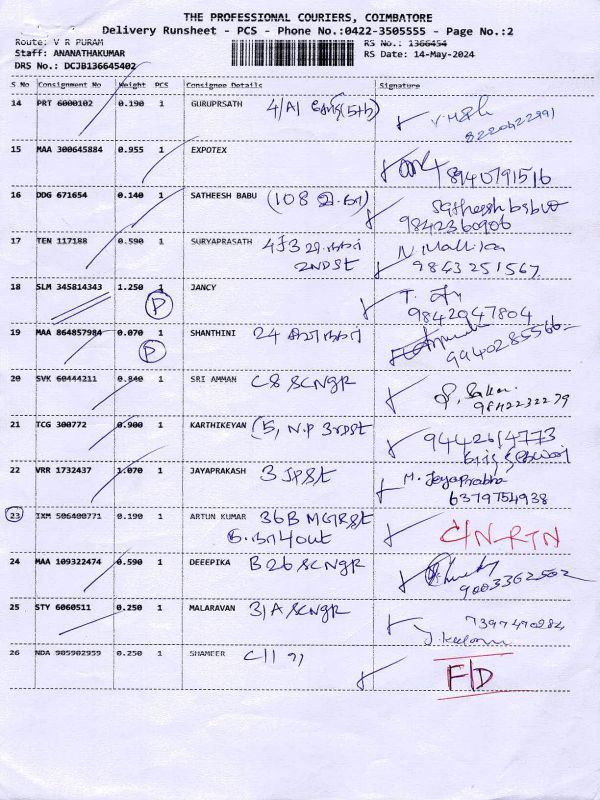 THE PROFESSIONAL COURIERS, COIMBATORE
Delivery Runsheet - PCS - Phone No.:0422-3505555 - Page No.:2
Route: V R PURAM
RS No.: 1366454
Staff: ANANATHAKUMAR
RS Date: 14-May-2024
DRS No.: DCJB136645402
S No Consignment No Weight PCS Consignee Details Signature
14 PRT 6000102 0.190 1 GURUPRSATH 4/A1
8220422991
15 MAA 300645884 0.955 1 EXPOTEX
8940791516
16 DDG 671654 0.140 1 SATHEESH BABU (108
9842360906
17 TEN 117188 0.590 1 SURYAPRASATH
2NDSt
N. Mallika
9843251567
18 SLM 345814343 1.250 1 JANCY
P
9842047804
19 MAA 864857984 0.070 1 SHANTHINI 24
P
20 SVK 60444211 0.840 1 SRI AMMAN C8 SCNGR
9842232279
21 TCG 300772 0.900 1 KARTHIKEYAN (5, N.P 3rdSt
9442614773
22 VRR 1732437 1.070 1 JAYAPRAKASH 3 JPSt
M. Jayaprabha
6379754938
23 IXM 506400771 0.190 1 ARTUN KUMAR 36B MGRSt
C/N-RTN
24 MAA 109322474 0.590 1 DEEEPIKA B26 SCNGR
9003362502
25 STY 6060511 0.250 1 MALARAVAN 3/A SCNGR
7397490284
26 NDA 905902959 0.250 1 SHAMEER C11
F/D